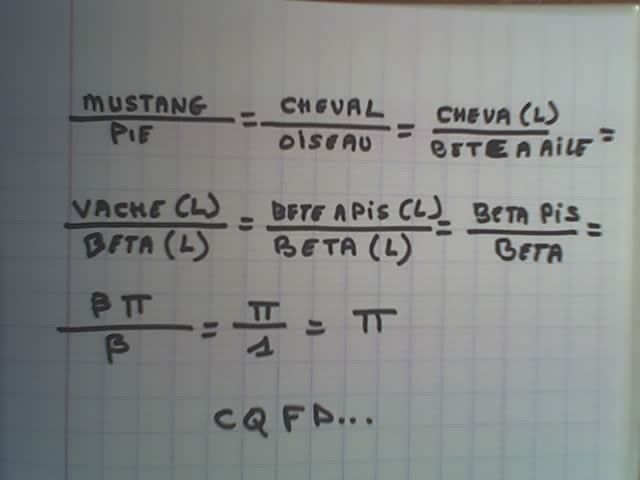 MUSTANG/PIE = CHEVAL/OISEAU = CHEVA(L)/BETE A AILE =
VACHE(L)/BETA(L) = BETE A PiS(L)/BETA(L) = BETA PiS/BETA =
β π/β = π/1 = π
CQFD...